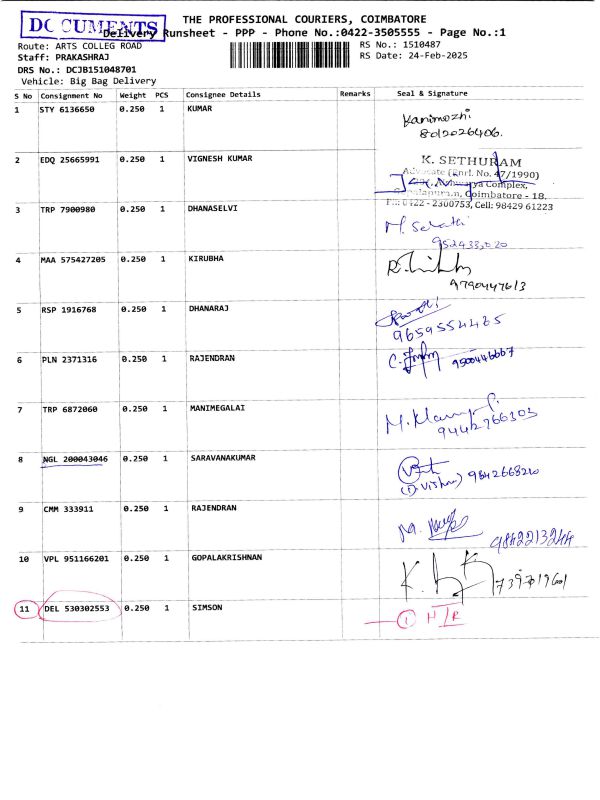 DOCUMENTS
THE PROFESSIONAL COURIERS, COIMBATORE
Delivery Runsheet - PPP - Phone No.:0422-3505555 - Page No.:1
Route: ARTS COLLEG ROAD
RS No.: 1510487
Staff: PRAKASHRAJ
RS Date: 24-Feb-2025
DRS No.: DCJB151048701
Vehicle: Big Bag Delivery
S No Consignment No Weight PCS Consignee Details Remarks Seal & Signature
1 STY 6136650 0.250 1 KUMAR
Kanimozhi
8012026406.
2 EDQ 25665991 0.250 1 VIGNESH KUMAR
K. SETHURAM
Advocate (Enrl. No. 47/1990)
Complex,
Coimbatore - 18.
Ph: 0422 - 2300753, Cell: 98429 61223
3 TRP 7900980 0.250 1 DHANASELVI
M.
4 MAA 575427205 0.250 1 KIRUBHA
9790447613
5 RSP 1916768 0.250 1 DHANARAJ
9659554465
6 PLN 2371316 0.250 1 RAJENDRAN
9500446667
7 TRP 6872060 0.250 1 MANIMEGALAI
9442766303
8 NGL 200043046 0.250 1 SARAVANAKUMAR
9842668210
9 CMM 333911 0.250 1 RAJENDRAN
9842213244
10 VPL 951166201 0.250 1 GOPALAKRISHNAN
11 DEL 530302553 0.250 1 SIMSON
1 H/R